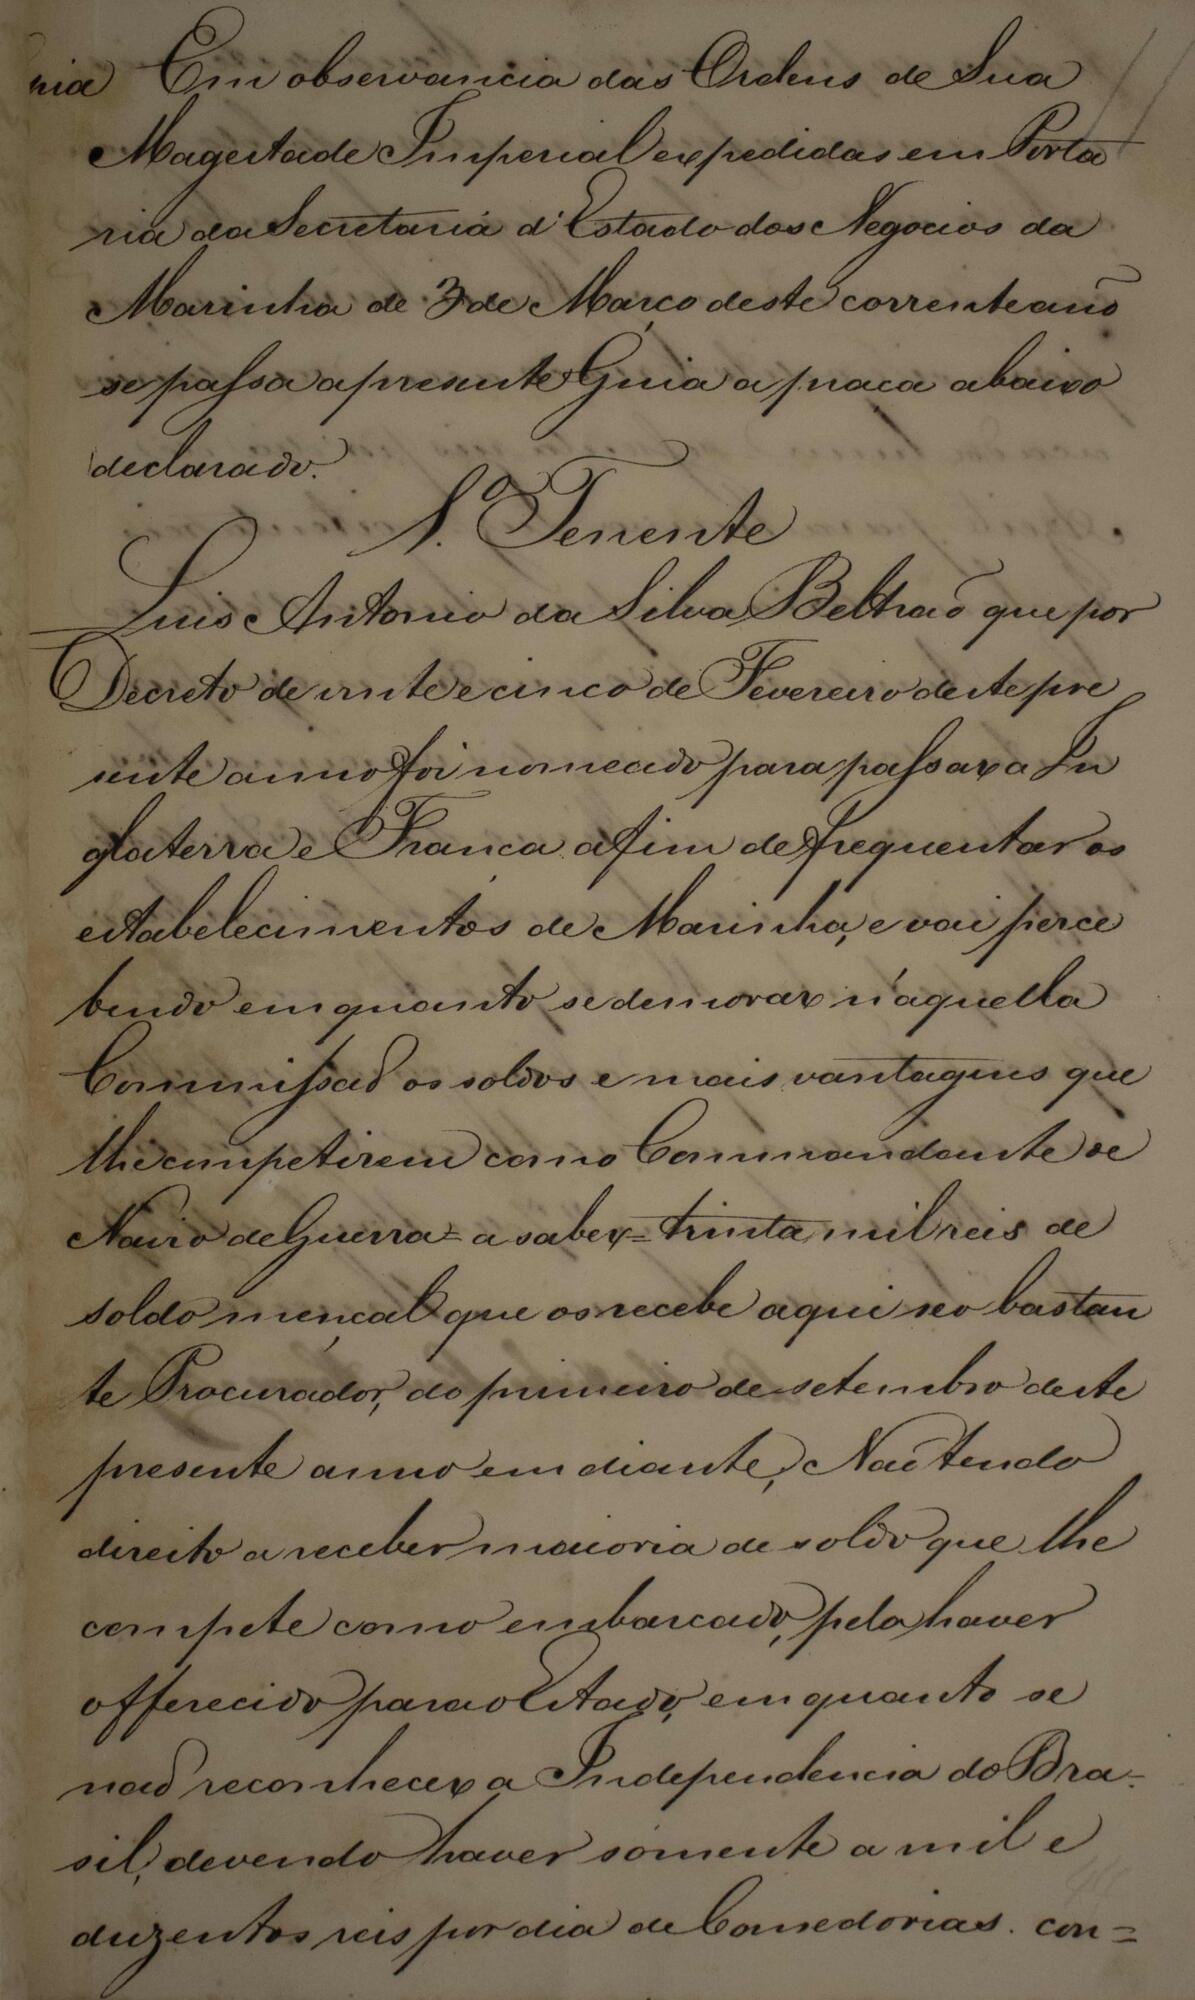 nia Em observancia das Ordens de Sua
Magestade Imperial expedidas em Porta
ria da Secretaria d'Estado dos Negocios da
Marinha de 3 de Março deste corrente anno
se passa a presente Guia a praca abaixo
declarado.
1.º Tenente
Luis Antonio da Silva Beltraõ que por
Decreto de vinte e cinco de Fevereiro deste pre
sente anno foi nomeado para passar a In
glaterra e França afim de frequentar os
estabelecimentos de Marinha, e vai perce
bendo emquanto se demorar n'aquella
Commissaõ os soldos e mais vantagens que
lhe competirem como Commandante de
Navio de Guerra = a saber = trinta mil reis de
soldo mençal que os recebe aqui seo bastan
te Procurador, do primeiro de setembro deste
presente anno em diante, Naõ tendo
direito a receber maioria de soldo que lhe
compete como embarcado, pelo haver
offerecido para o Estado, emquanto se
naõ reconhecer a Independencia do Bra-
sil, devendo haver sómente a mil e
duzentos reis por dia de Comedorias. con=